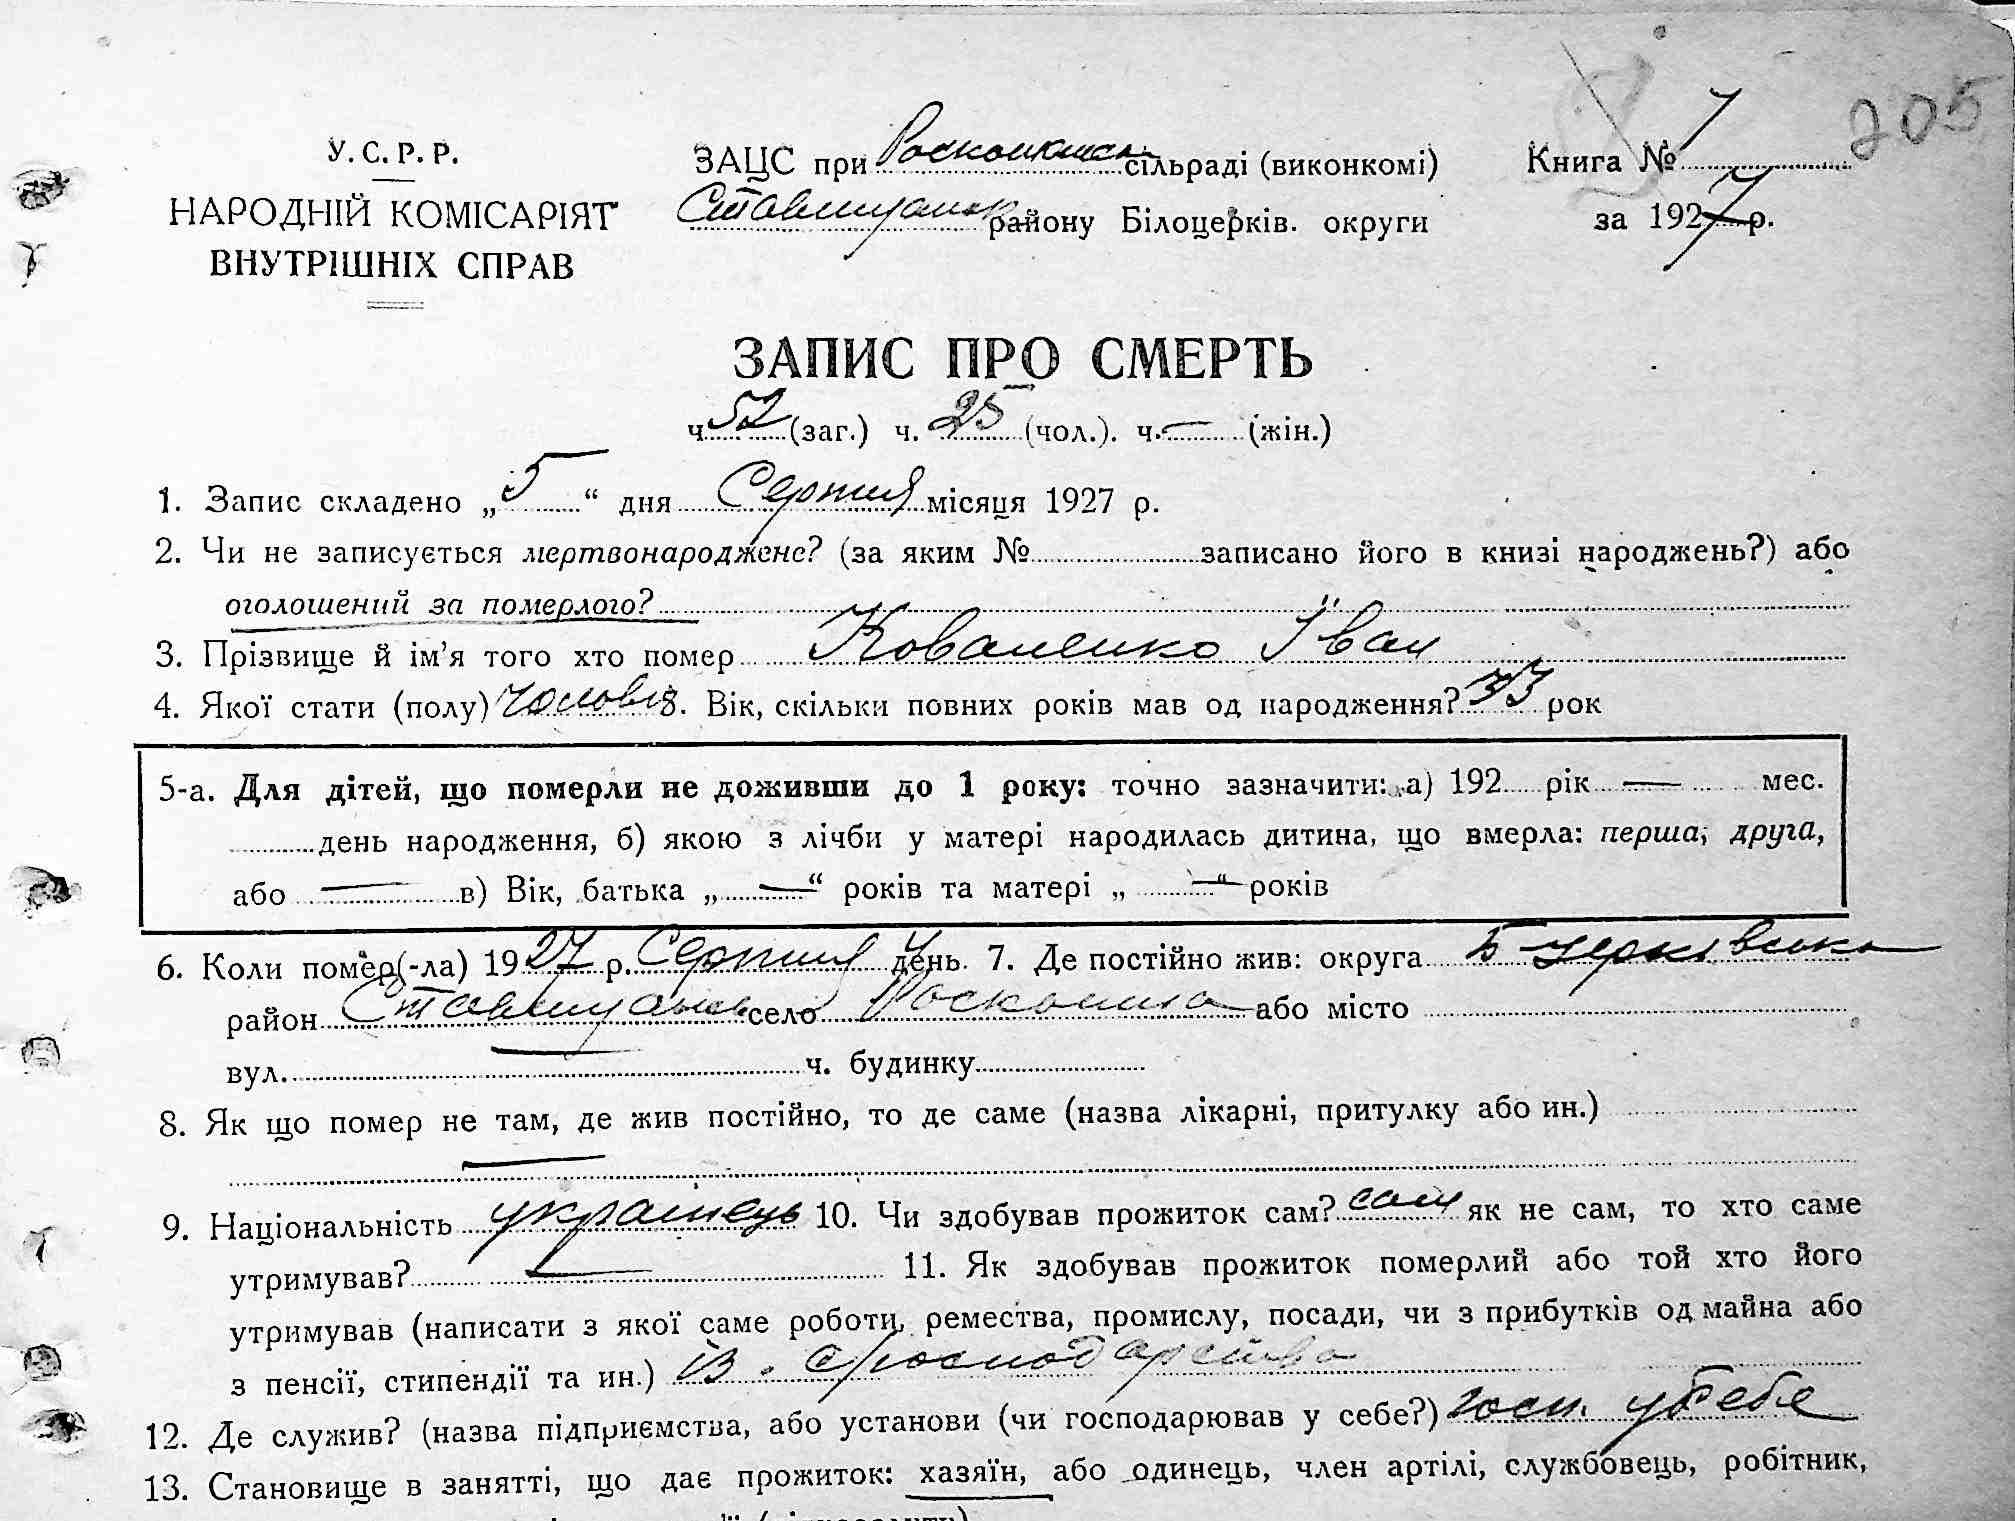 205
У. С. Р. Р.
НАРОДНІЙ КОМІСАРІЯТ
ВНУТРІШНІХ СПРАВ
ЗАЦС при сільраді (виконкомі)
району Білоцерків. округи
Книга № 7
за 1927 р.
ЗАПИС ПРО СМЕРТЬ
ч. 52 (заг.) ч. 25 (чол.). ч. — (жін.)
1. Запис складено „ 5 “ дня Серпня місяця 1927 р.
2. Чи не записується мертвонароджене? (за яким № записано його в книзі народжень?) або
оголошений за померлого?
3. Прізвище й ім’я того хто помер Коваленко Іван
4. Якої стати (полу) Вік, скільки повних років мав од народження? 33 рок
5-а. Для дітей, що померли не доживши до 1 року: точно зазначити: а) 192 рік — мес.
день народження, б) якою з лічби у матері народилась дитина, що вмерла: перша, друга,
або — в) Вік, батька „ — “ років та матері „ — “ років
6. Коли помер(-ла) 1927 р. Серпня 4 день. 7. Де постійно жив: округа Б Церківська
район село Роскошна або місто
вул. — ч. будинку
8. Як що помер не там, де жив постійно, то де саме (назва лікарні, притулку або ин.)
—
9. Національність українець 10. Чи здобував прожиток сам? сам як не сам, то хто саме
утримував? — 11. Як здобував прожиток померлий або той хто його
утримував (написати з якої саме роботи, ремества, промислу, посади, чи з прибутків од майна або
з пенсії, стипендії та ин.) із. с господарства
12. Де служив? (назва підприємства, або установи (чи господарював у себе?) госп. у себе
13. Становище в занятті, що дає прожиток: хазяїн, або одинець, член артілі, службовець, робітник,